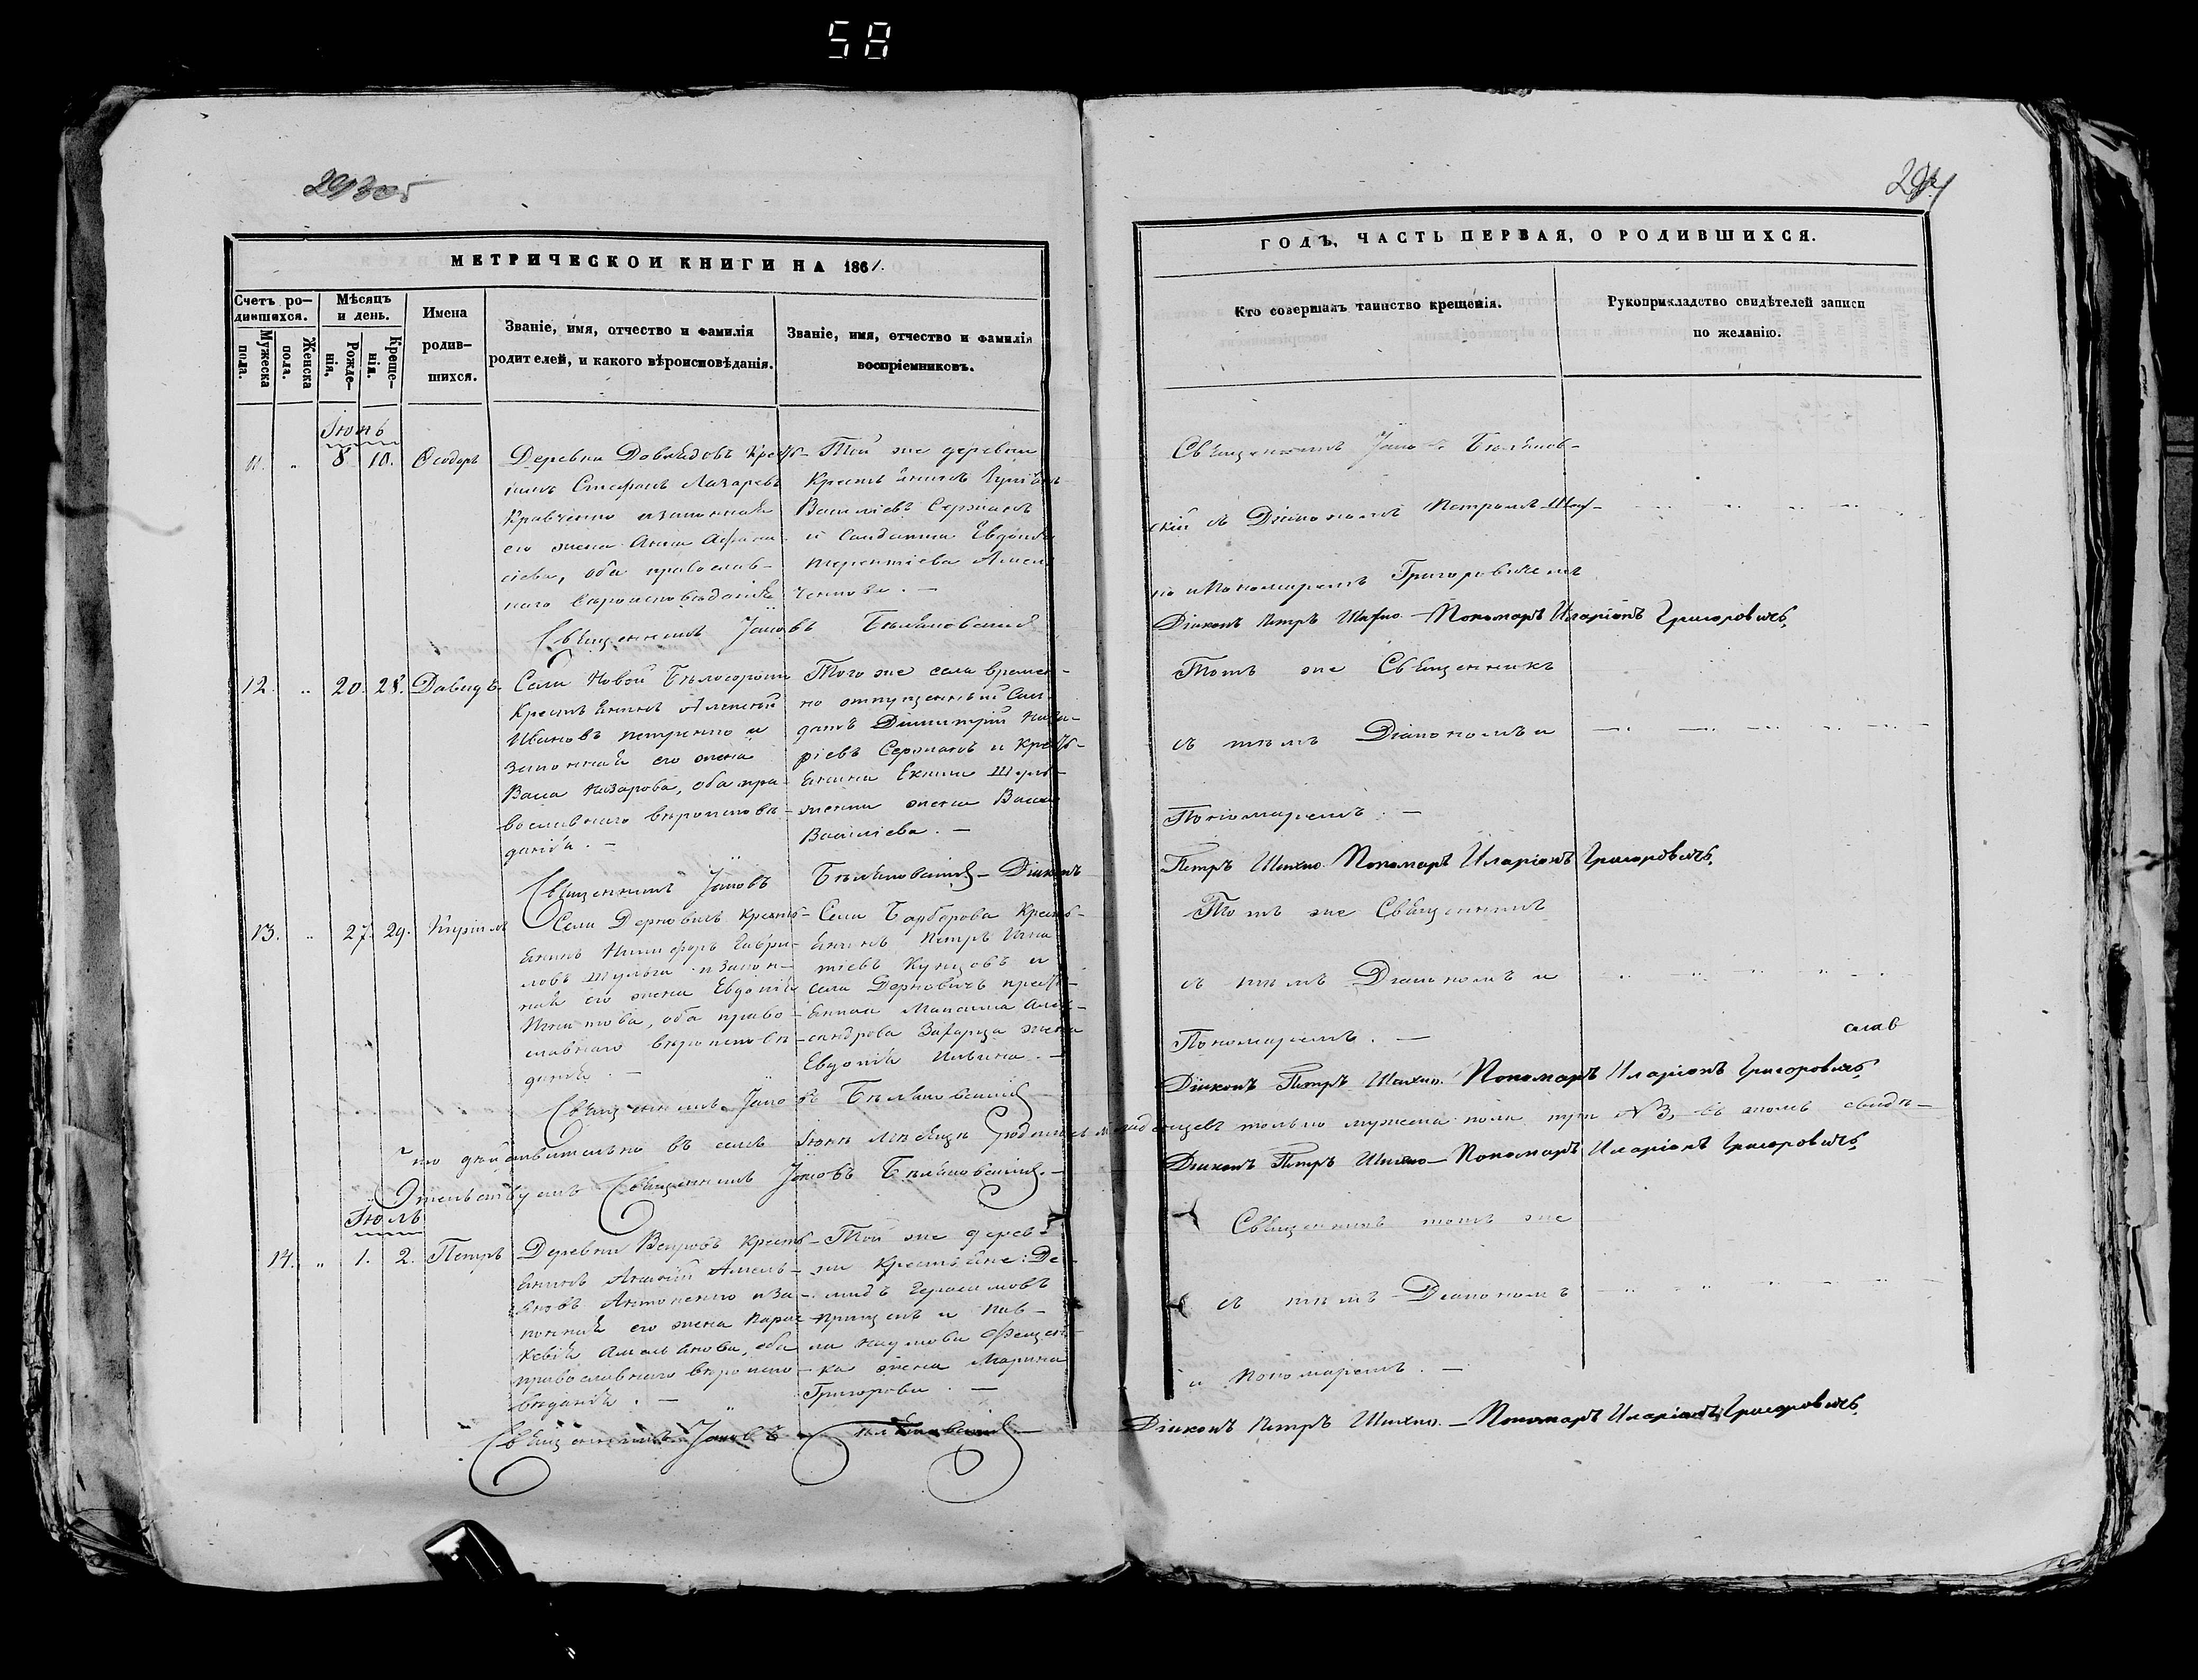 58
293 об
294
МЕТРИЧЕСКОЙ КНИГИ НА 1861.
Счетъ родившихся.
Мужеска пола.
Женска пола.
Мѣсяцъ и день.
Рожденія.
Крещенія.
Имена родившихся.
Званіе, имя, отчество и фамилія
родителей, и какого вѣроисповѣданія.
Званіе, имя, отчество и фамилія
воспріемниковъ.
Іюнь
11. „ 8. 10. Ѳеодоръ
Деревни Довлядовъ Кресть-
Стефанъ Лазаревъ
Кравченко и законная
его жена Анна Афана-
сіева, оба православ-
наго вѣроисповѣданія
Той же деревни
Крестьянинъ
Василіевъ Сержанъ
и Солдатка Евдокія
Терентіева
Священникъ Іаковъ Бѣляновскій
12. „ 20. 28. Давидъ.
Села Новой Бѣлосороки
Крестьянинъ Алексѣй
Ивановъ Петренко и
законная его жена
Васса Назарова, оба пра-
вославнаго вѣроисповѣ-
данія. —
Того же села времен-
но отпущенный Сол-
датъ Димитрій Наза-
ріевъ Сержанъ и кресть-
янина
жена Васса
Василіева. —
Священникъ Іаковъ Бѣляновскій — Діаконъ
13. „ 27. 29. Кирилъ
Села Дерновичъ Кресть-
янинъ Никифоръ Гаври-
ловъ Шульга и закон-
ная его жена Евдокія
Игнатова, оба право-
славнаго вѣроисповѣ-
данія. —
Села Барборова Кресть-
янинъ Петръ Игна-
тіевъ Купцовъ и
села Дерновичъ кресть-
янина Максима Алек-
сандрова жена
Евдокія Ильина. —
Священникъ Іаковъ Бѣляновскій
Что дѣйствительно въ семъ Іюнѣ мѣсяцѣ родилось младенцевъ только мужеска пола три № 3, въ томъ свидѣ-
тельствуемъ Священникъ Іаковъ Бѣляновскій. —
Іюль
14. „ 1. 2. Петръ
Деревни Вепровъ Кресть-
янинъ Амель-
яновъ Антоненко и за-
конная его жена Парас-
кевія Амельянова, оба
православнаго вѣроиспо-
вѣданія. —
Той же дерев-
ни Крестьяне: Де-
мидъ Герасимовъ
и Пав-
ла Наумова
жена Марина
Григорова. —
Священникъ Іаковъ Бѣляновскій
ГОДЪ, ЧАСТЬ ПЕРВАЯ, О РОДИВШИХСЯ.
Кто совершалъ таинство крещенія.
Рукоприкладство свидѣтелей записи
по желанію.
Священникъ Іаковъ Бѣлянов-
скій съ Діакономъ Петромъ Шах-
но и Пономаремъ Григоровичемъ
Діаконъ Петръ Шахно. — Пономарь Иларіонъ Григоровичъ.
Тотъ же Священникъ
съ тѣмъ Діакономъ и
Пономаремъ. —
Петръ Шахно. Пономарь Иларіонъ Григоровичъ.
Тотъ же Священникъ
съ тѣмъ Діакономъ и
Пономаремъ. —
Діаконъ Петръ Шахно. Пономарь Иларіонъ Григоровичъ.
Діаконъ Петръ Шахно — Пономарь Иларіонъ Григоровичъ.
Священникъ тотъ же
съ тѣмъ Діакономъ
и Пономаремъ. —
Діаконъ Петръ Шахно. — Пономарь Иларіонъ Григоровичъ.